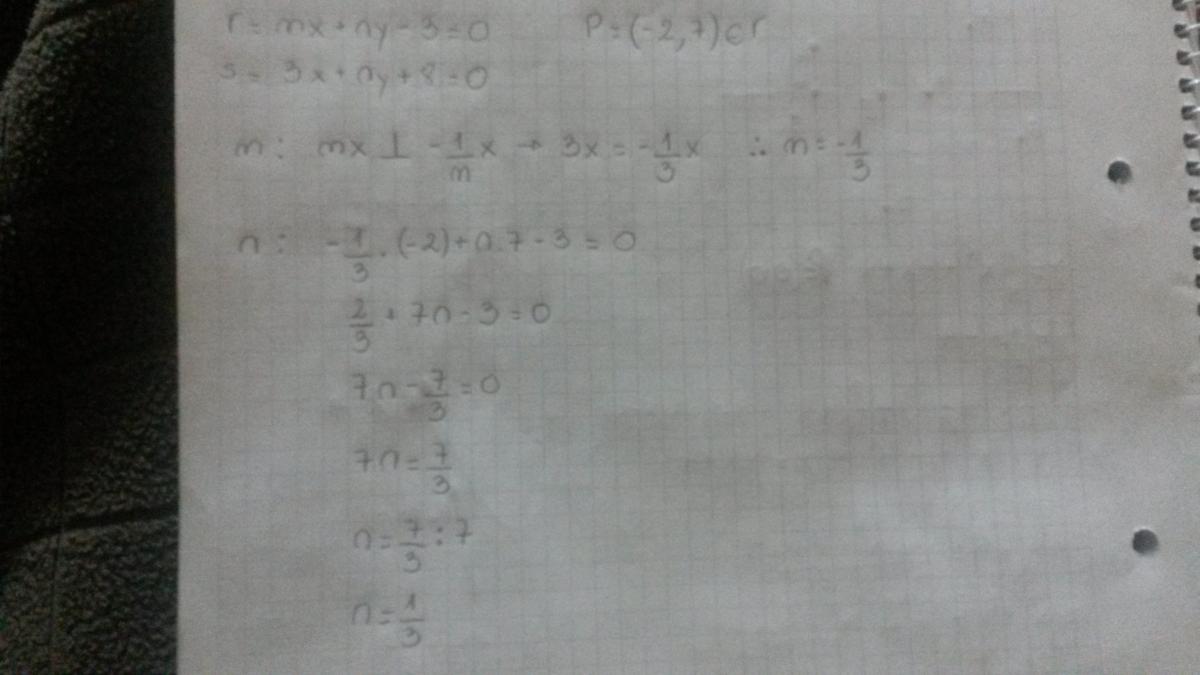 r = mx + ny - 3 = 0 P = (-2, 7) ∈ r
s = 3x + ny + 8 = 0
m: mx ⊥ -1/m x → 3x = -1/3 x ∴ m = -1/3
n: -1/3 . (-2) + n.7 - 3 = 0
2/3 + 7n - 3 = 0
7n - 7/3 = 0
7n = 7/3
n = 7/3 : 7
n = 1/3